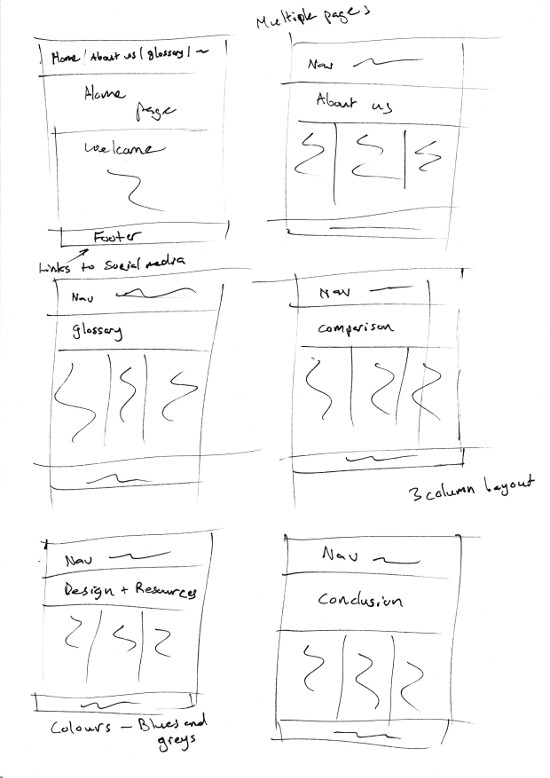 Multiple pages
Home / About us / glossary /
Home
page
Welcome
Footer
Links to Social media
Nav
About us
Nav
glossary
Nav
comparison
3 column layout
Nav
Design + Resources
Colours - Blues and
greys
Nav
Conclusion